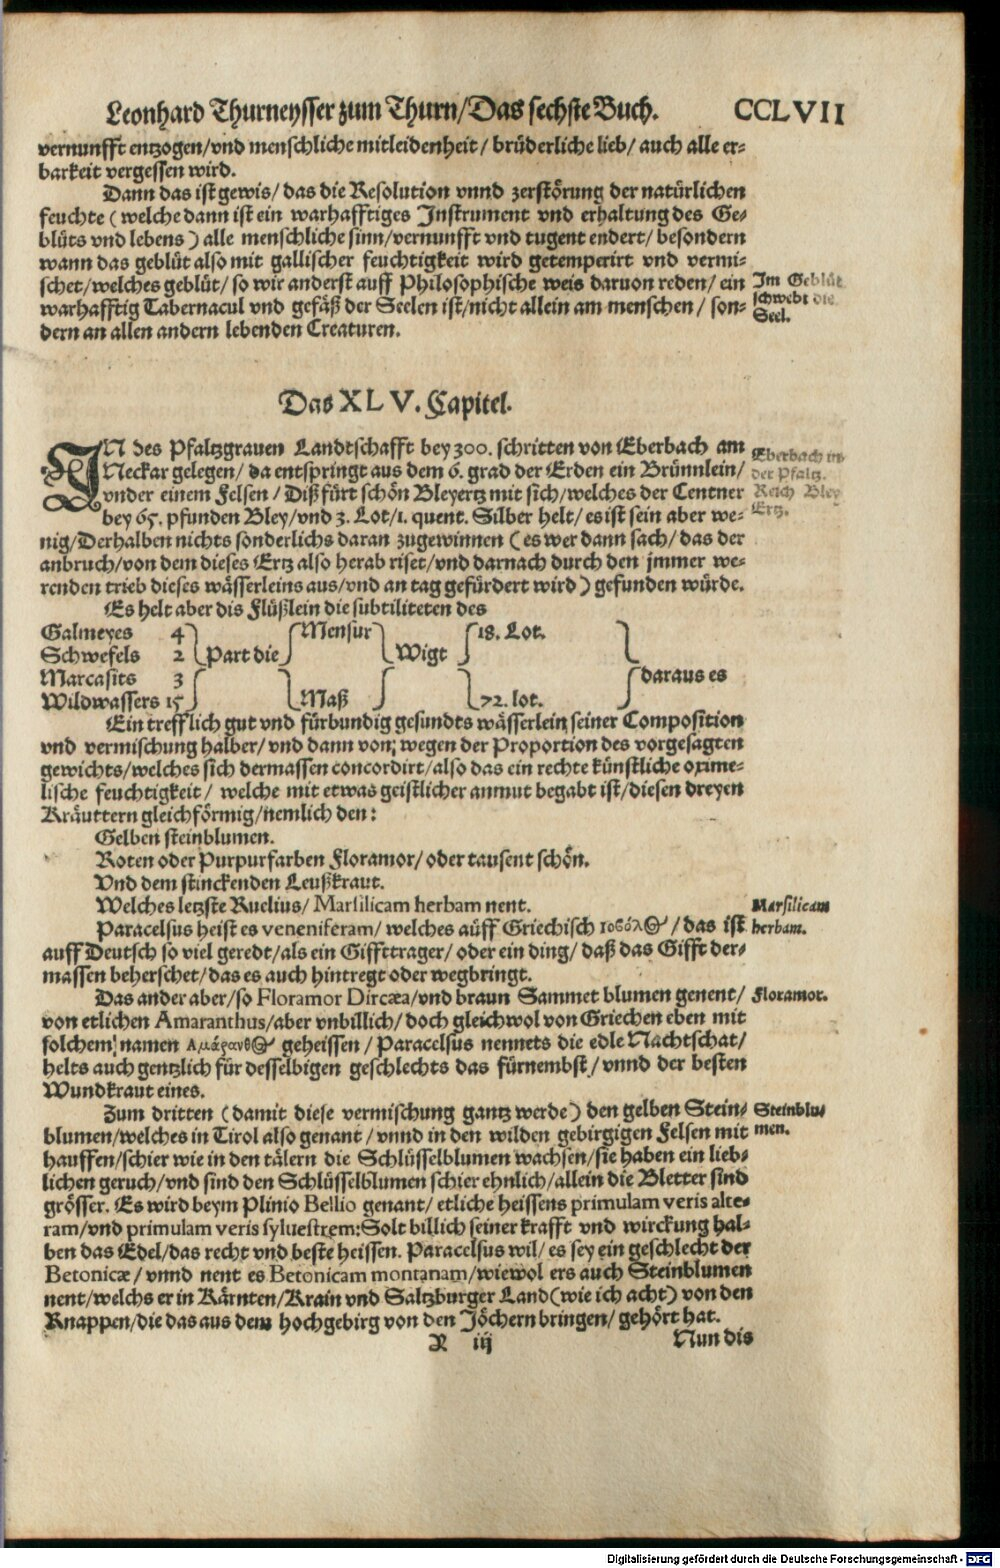 Leonhard Thurneysser zum Thurn/Das sechste Buch. CCLVII
vernunfft entzogen/vnd menschliche mitleidenheit/ brüderliche lieb/ auch alle er-
barkeit vergessen wird.
Dann das ist gewis/ das die Resolution vnnd zerstörung der natürlichen
feuchte (welche dann ist ein warhafftiges Instrument vnd erhaltung des Ge-
blüts vnd lebens) alle menschliche sinn/vernunfft vnd tugent endert/ besondern
wann das geblüt also mit gallischer feuchtigkeit wird getemperirt vnd vermi-
schet/welches geblüt/ so wir anderst auff Philosophische weis daruon reden/ ein
warhafftig Tabernacul vnd gefäß der Seelen ist/nicht allein am menschen/ son-
dern an allen andern lebenden Creaturen.
Im Geblüt
schwebt die
Seel.
Das XLV. Capitel.
IN des Pfaltzgrauen Landtschafft bey 300. schritten von Eberbach am
Neckar gelegen/ da entspringt aus dem 6. grad der Erden ein Brünnlein/
vnder einem Felsen/ Diß fürt schön Bleyertz mit sich/welches der Centner
bey 65. pfunden Bley/vnd 3. Lot/1. quent. Silber helt/ es ist sein aber we-
nig/Derhalben nichts sonderlichs daran zugewinnen (es wer dann sach/ das der
anbruch/von dem dieses Ertz also herab riset/vnd darnach durch den jmmer we-
renden trieb dieses wässerleins aus/vnd an tag gefürdert wird) gefunden würde.
Eberbach in
der Pfaltz.
Reich Bley
Ertz.
Es helt aber dis Flüßlein die subtiliteten des
Galmeyes 4 Mensur 18. Lot.
Schwefels 2 Part die Wigt
Marcasits 3 daraus es
Wildwassers 15 Maß 72. lot.
Ein trefflich gut vnd fürbundig gesundts wässerlein seiner Composition
vnd vermischung halber/vnd dann von; wegen der Proportion des vorgesagten
gewichts/welches sich dermassen concordirt/also das ein rechte künstliche oxime-
lische feuchtigkeit/ welche mit etwas geistlicher anmut begabt ist/diesen dreyen
Kräuttern gleichförmig/nemlich den:
Gelben steinblumen.
Roten oder Purpurfarben Floramor/oder tausent schön.
Vnd dem stinckenden Leußkraut.
Welches letzste Ruelius/ Marsilicam herbam nent.
Marsilicam
herbam.
Paracelsus heist es veneniferam/welches aüff Griechisch ιοϐόλ꙳/das ist
auff Deutsch so viel geredt/als ein Giffttrager/ oder ein ding/ daß das Gifft der-
massen beherschet/das es auch hintregt oder wegbringt.
Das ander aber/so Floramor Dircæa/vnd braun Sammet blumen genent/
von etlichen Amaranthus/aber vnbillich/doch gleichwol von Griechen eben mit
solchem namen Αμάρανθ꙳ geheissen/ Paracelsus nennets die edle Nachtschat/
helts auch gentzlich für desselbigen geschlechts das fürnembst/ vnnd der besten
Wundkraut eines.
Floramor.
Zum dritten (damit diese vermischung gantz werde) den gelben Stein-
blumen/welches in Tirol also genant/vnnd in den wilden gebirgigen Felsen mit
hauffen/schier wie in den tälern die Schlüsselblumen wachsen/sie haben ein lieb-
lichen geruch/vnd sind den Schlüsselblumen schier ehnlich/allein die Bletter sind
grösser. Es wird beym Plinio Bellio genant/ etliche heissens primulam veris alte-
ram/vnd primulam veris syluestrem: Solt billich seiner krafft vnd wirckung hal-
ben das Edel/das recht vnd beste heissen. Paracelsus wil/ es sey ein geschlecht der
Betonicæ/vnnd nent es Betonicam montanam/wiewol ers auch Steinblumen
nent/welchs er in Kärnten/Krain vnd Saltzburger Land(wie ich acht) von den
Knappen/die das aus dem hochgebirg von den Jöchern bringen/ gehört hat.
Steinblu-
men.
iij Nun dis
Digitalisierung gefördert durch die Deutsche Forschungsgemeinschaft - DFG